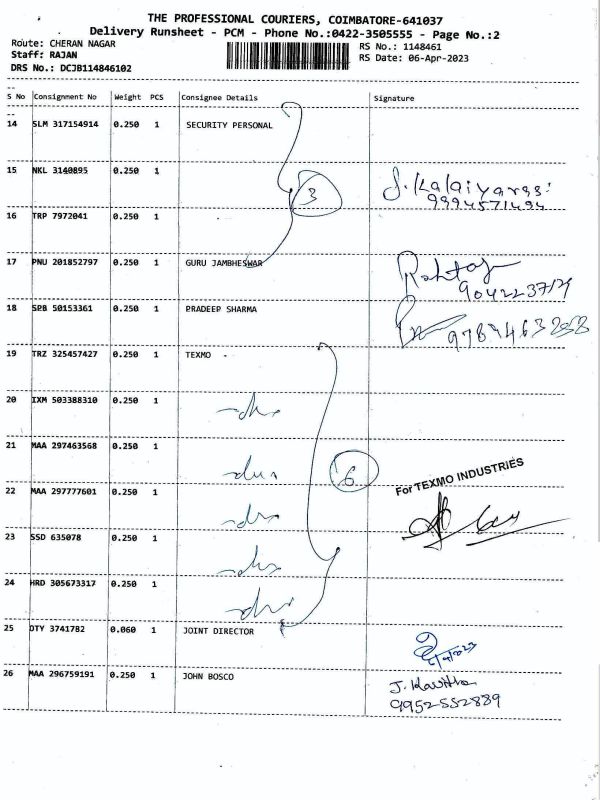 THE PROFESSIONAL COURIERS, COIMBATORE-641037
Delivery Runsheet - PCM - Phone No.:0422-3505555 - Page No.:2
Route: CHERAN NAGAR RS No.: 1148461
Staff: RAJAN RS Date: 06-Apr-2023
DRS No.: DCJB114846102
S No Consignment No Weight PCS Consignee Details Signature
14 SLM 317154914 0.250 1 SECURITY PERSONAL
15 NKL 3140895 0.250 1
3 J. Kalaiyarasi
9994571494
16 TRP 7972041 0.250 1
17 PNU 201852797 0.250 1 GURU JAMBHESWAR
18 SPB 50153361 0.250 1 PRADEEP SHARMA
19 TRZ 325457427 0.250 1 TEXMO
20 IXM 503388310 0.250 1
21 MAA 297463568 0.250 1
6 For TEXMO INDUSTRIES
22 MAA 297777601 0.250 1
23 SSD 635078 0.250 1
24 HRD 305673317 0.250 1
25 DTY 3741782 0.060 1 JOINT DIRECTOR
26 MAA 296759191 0.250 1 JOHN BOSCO J. Kavitha
9952552889